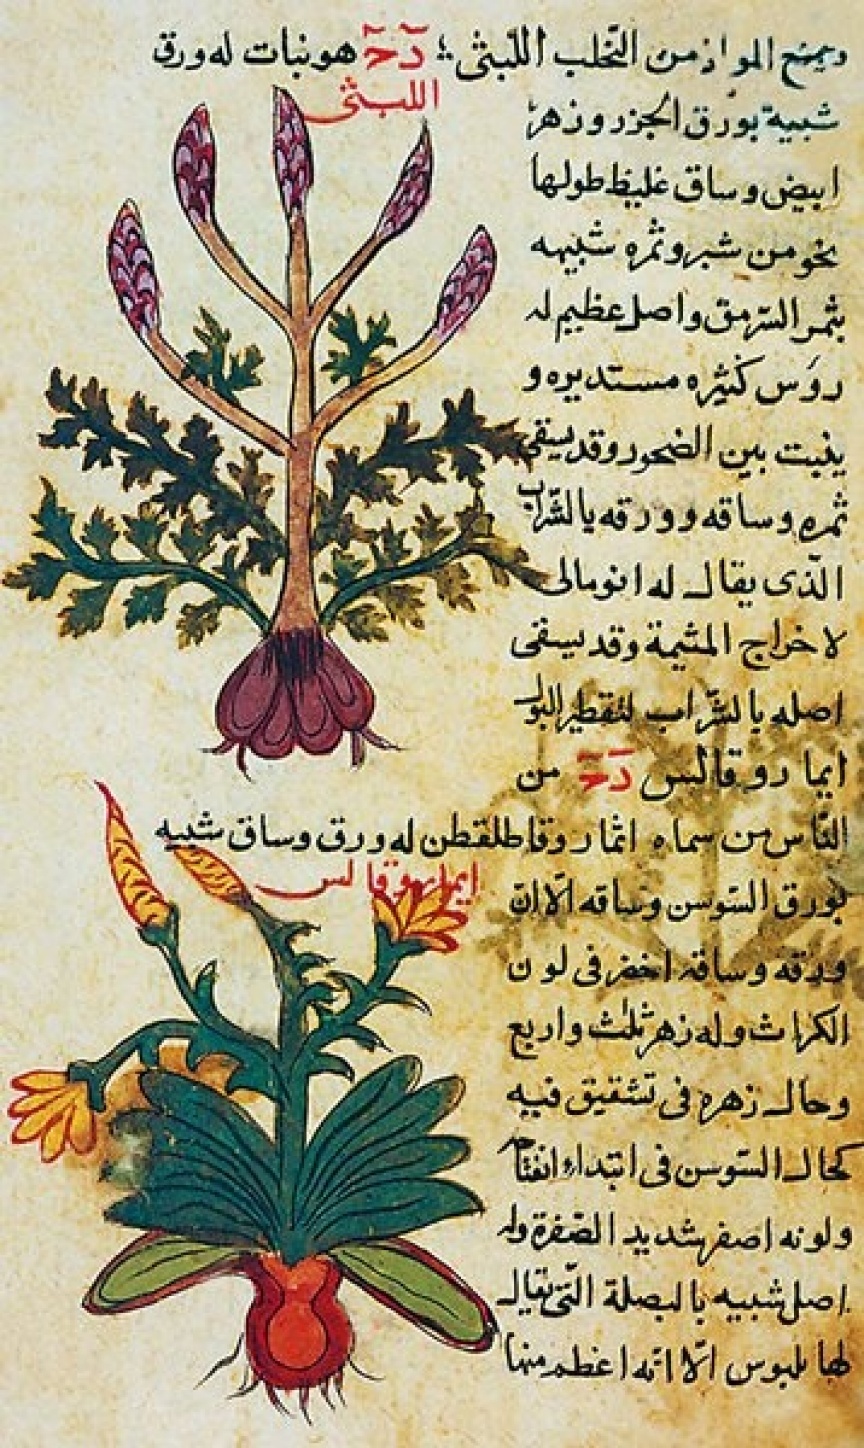 ويمنع المواد من التحلب اللبثى؛ دح هو نبات له ورق
اللبثى
شبيه بورق الجزر وزهر
ابيض وساق غليظ طولها
نحو من شبر وثمره شبيهه
بثمر السرمق واصل عظيم له
روس كثيره مستديره و
ينبت بين الصخور وقد يسقى
ثمره وساقه وورقه بالشراب
الذى يقال له انومالى
لاخراج المشيمة وقد يسقى
اصله بالشراب لتقطير البول
ايما روقالس دح من
الناس من سماه انما روقا طلقطن له ورق وساق شبيه
ايما روقا لس
بورق السوسن وساقه الا ان
ورقه وساقه اخضر فى لون
الكراث وله زهر ثلث واربع
وحال زهره فى تشقيق فيه
كحال السوسن فى ابتداء انفتاحه
ولونه اصفر شديد الصفرة وله
اصل شبيه بالبصلة التى يقال
لها بلبوس الا انه اعظم منها